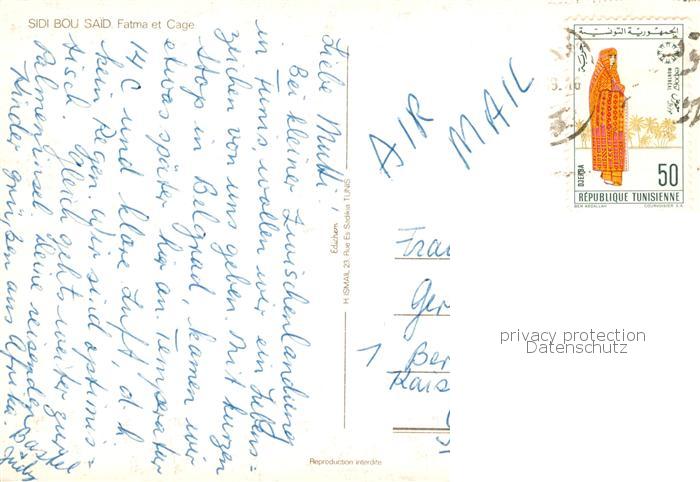 SIDI BOU SAÏD. Fatma et Cage
Liebe Mutti!
Bei kleiner Zwischenlandung
in Tunis wollen wir ein Lebens=
zeichen von uns geben. Mit kurzen
Stop in Belgrad, kamen wir
etwas später hier an. Temperatur
14 C und klare Luft, d. h.
kein Regen. Wir sind optimis=
tisch. Gleich gehts weiter zur
Palmeninsel. Deine reisenden
Kinder grüßen aus Afrika.
Edichem
H. ISMAIL, 23, Rue Es Sadikia TUNIS
Reproduction interdite
AIR
MAIL
الجمهورية التونسية
MONTREAL
DJERBA
50
RÉPUBLIQUE TUNISIENNE
BEN ABDALLAH COURVOISIER S.A.
Frau
Ger
1 Ber
Kais
privacy protection
Datenschutz